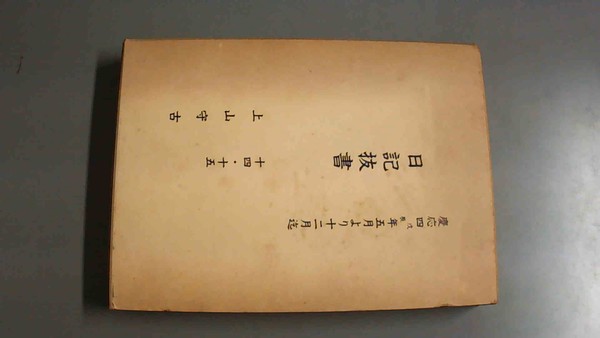 慶応四戊辰年五月より十二月迄
日記抜書
十四・十五
上山守古